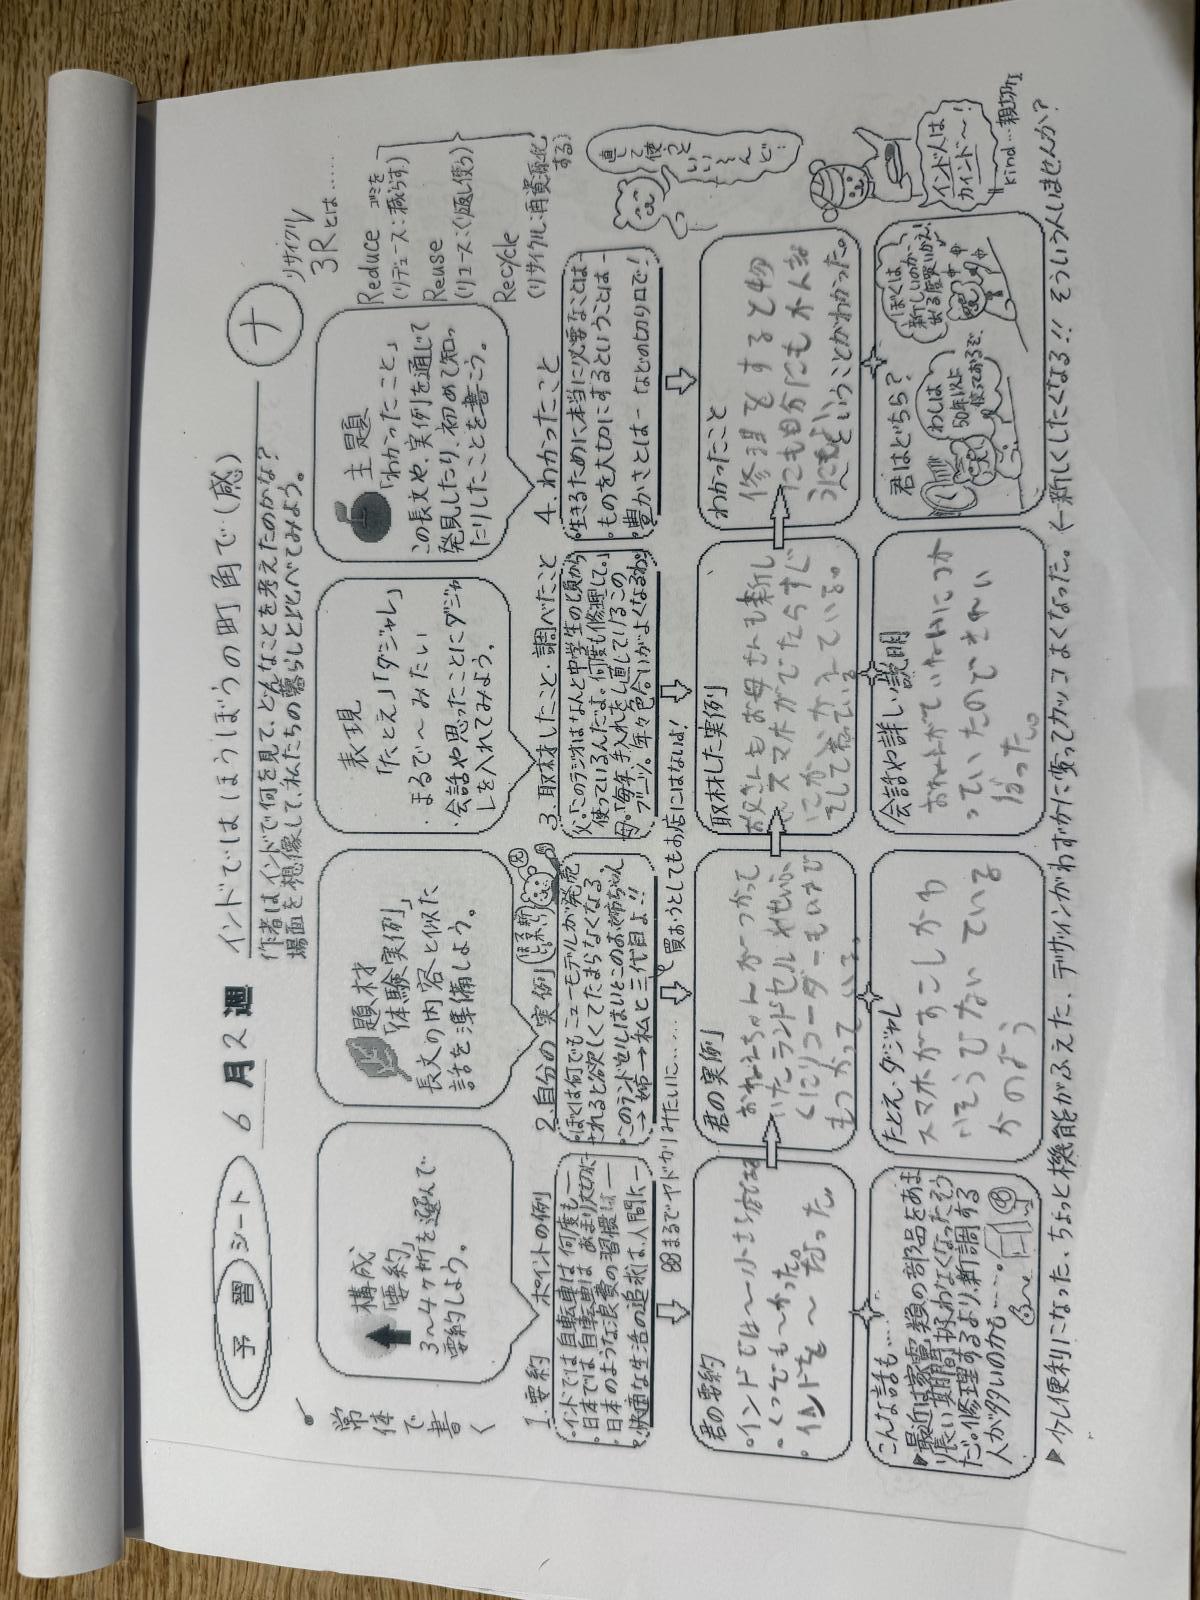 予習シート
6月2週
インドではほうぼうの町角で(感)
ナ
作者はインドで何を見て、どんなことを考えたのかな?
場面を想像して、私たちの暮らしと比べてみよう。
リサイクル
3Rとは……
Reduce ゴミを
(リデュース:減らす)
Reuse
(リユース:くり返し使う)
Recycle
(リサイクル:再資源化
する)
常体で書く
構成
「要約」
3〜4ヶ所を選んで
要約しよう。
題材
「体験実例」
長文の内容と似た
話を準備しよう。
表現
「たとえ」「ダジャレ」
・まるで〜みたい
・会話や思ったことにダジャ
レを入れてみよう。
主題
「わかったこと」
この長文や、実例を通じて
発見したり、初めて知っ
たりしたことを書こう。
1.要約 ポイントの例
・インドでは自転車は何度も―
・日本では自転車は、あまり大切に―
・日本のような浪費の習慣は―
・快適な生活の追求は、人間に―
2.自分の実例
・ぼくは何でもニューモデルが発売
されると欲しくてたまらなくなる。
・このランドセルはいとこのお姉ちゃん
→姉→私と三代目よ!!
まるでヤドカリみたいに……
3.取材したこと・調べたこと
父。「このラジオはなんと中学生の頃から
使っているんだよ。何度も修理して。」
母。「毎年手入れをし直しているこの
ブーツ。年々色合いがよくなるわ。」
買おうとしてもお店にはないよ!
4.わかったこと
・生きるために本当に必要なことは―
・ものを大切にするということは―
・豊かさとは― などの切り口で!
直して使うといいけど…
君の要約
・インドでは〜
・くっても〜かった。
・インドを〜だった
君の実例
おねえちゃんがつかって
いたランドセルやせいふ
くにリコーダーもいまで
もつかっている。
取材した実例
お父さんもお母さんも新し
いスマホがでたらすぐ
にかいかえている。
わかったこと
修理をすると物
にも自分にもかんきょ
うにもよいということがわかった。
インド人は
カインド〜!
kind…親切な
こんな話も…
▶最近は家電類の部品をあま
り長い期間扱わなくなったそう
だ。修理するより、新調する
人が多いのかも……。
たとえ・ダジャレ
スマホがすこしかわ
いそうひないている
かのよう
会話や詳しい説明
おねえちゃんがていねいにつか
っていたのできれい
だった。
君はどちら?
わしは
50年以上
使っておるぞ。
ぼくは、
新しいのが
出る度買いかえ!
▶少し便利になった、ちょっと機能がふえた、デザインがわずかに変ってカッコよくなった。←新しくしたくなる!!そういう人いませんか?